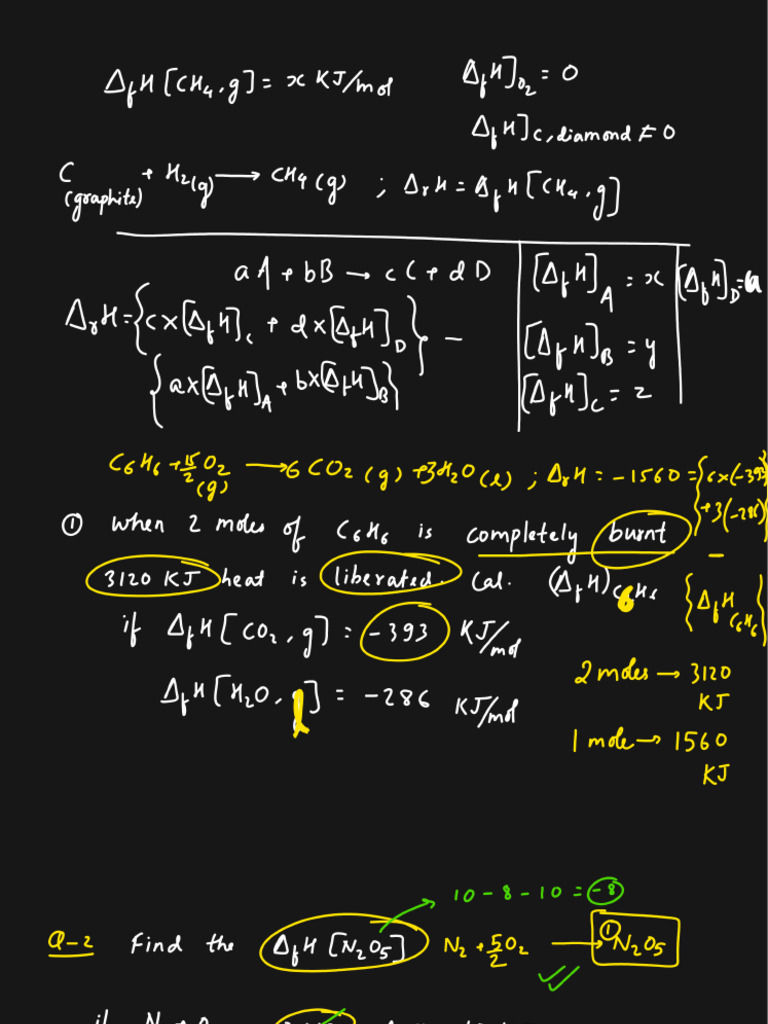 Δ_fH [CH₄, g] = x KJ/mol
Δ_fH]_O₂ = 0
Δ_fH]_C, diamond ≠ 0
C (graphite) + H₂(g) ⟶ CH₄(g) ; Δ_rH = Δ_fH [CH₄, g]
aA + bB → cC + dD
Δ_rH = {c×[Δ_fH]_C + d×[Δ_fH]_D} –
{a×[Δ_fH]_A + b×[Δ_fH]_B}
[Δ_fH]_A = x
[Δ_fH]_D =
[Δ_fH]_B = y
[Δ_fH]_C = z
C₆H₆ + 15/2 O₂ (g) ⟶ 6CO₂(g) + 3H₂O(l) ; Δ_rH = –1560 = {6×(–393)
+3(–286)}
–
{Δ_fH C₆H₆}
① when 2 moles of C₆H₆ is completely burnt
3120 KJ heat is liberated. Cal. (Δ_fH)_C₆H₆
if Δ_fH [CO₂, g] = –393 KJ/mol
Δ_fH [H₂O, l] = –286 KJ/mol
2 moles → 3120 KJ
1 mole → 1560 KJ
10 – 8 – 10 = –8
Q–2 Find the Δ_fH [N₂O₅] N₂ + 5/2 O₂ ⟶ ①N₂O₅
if